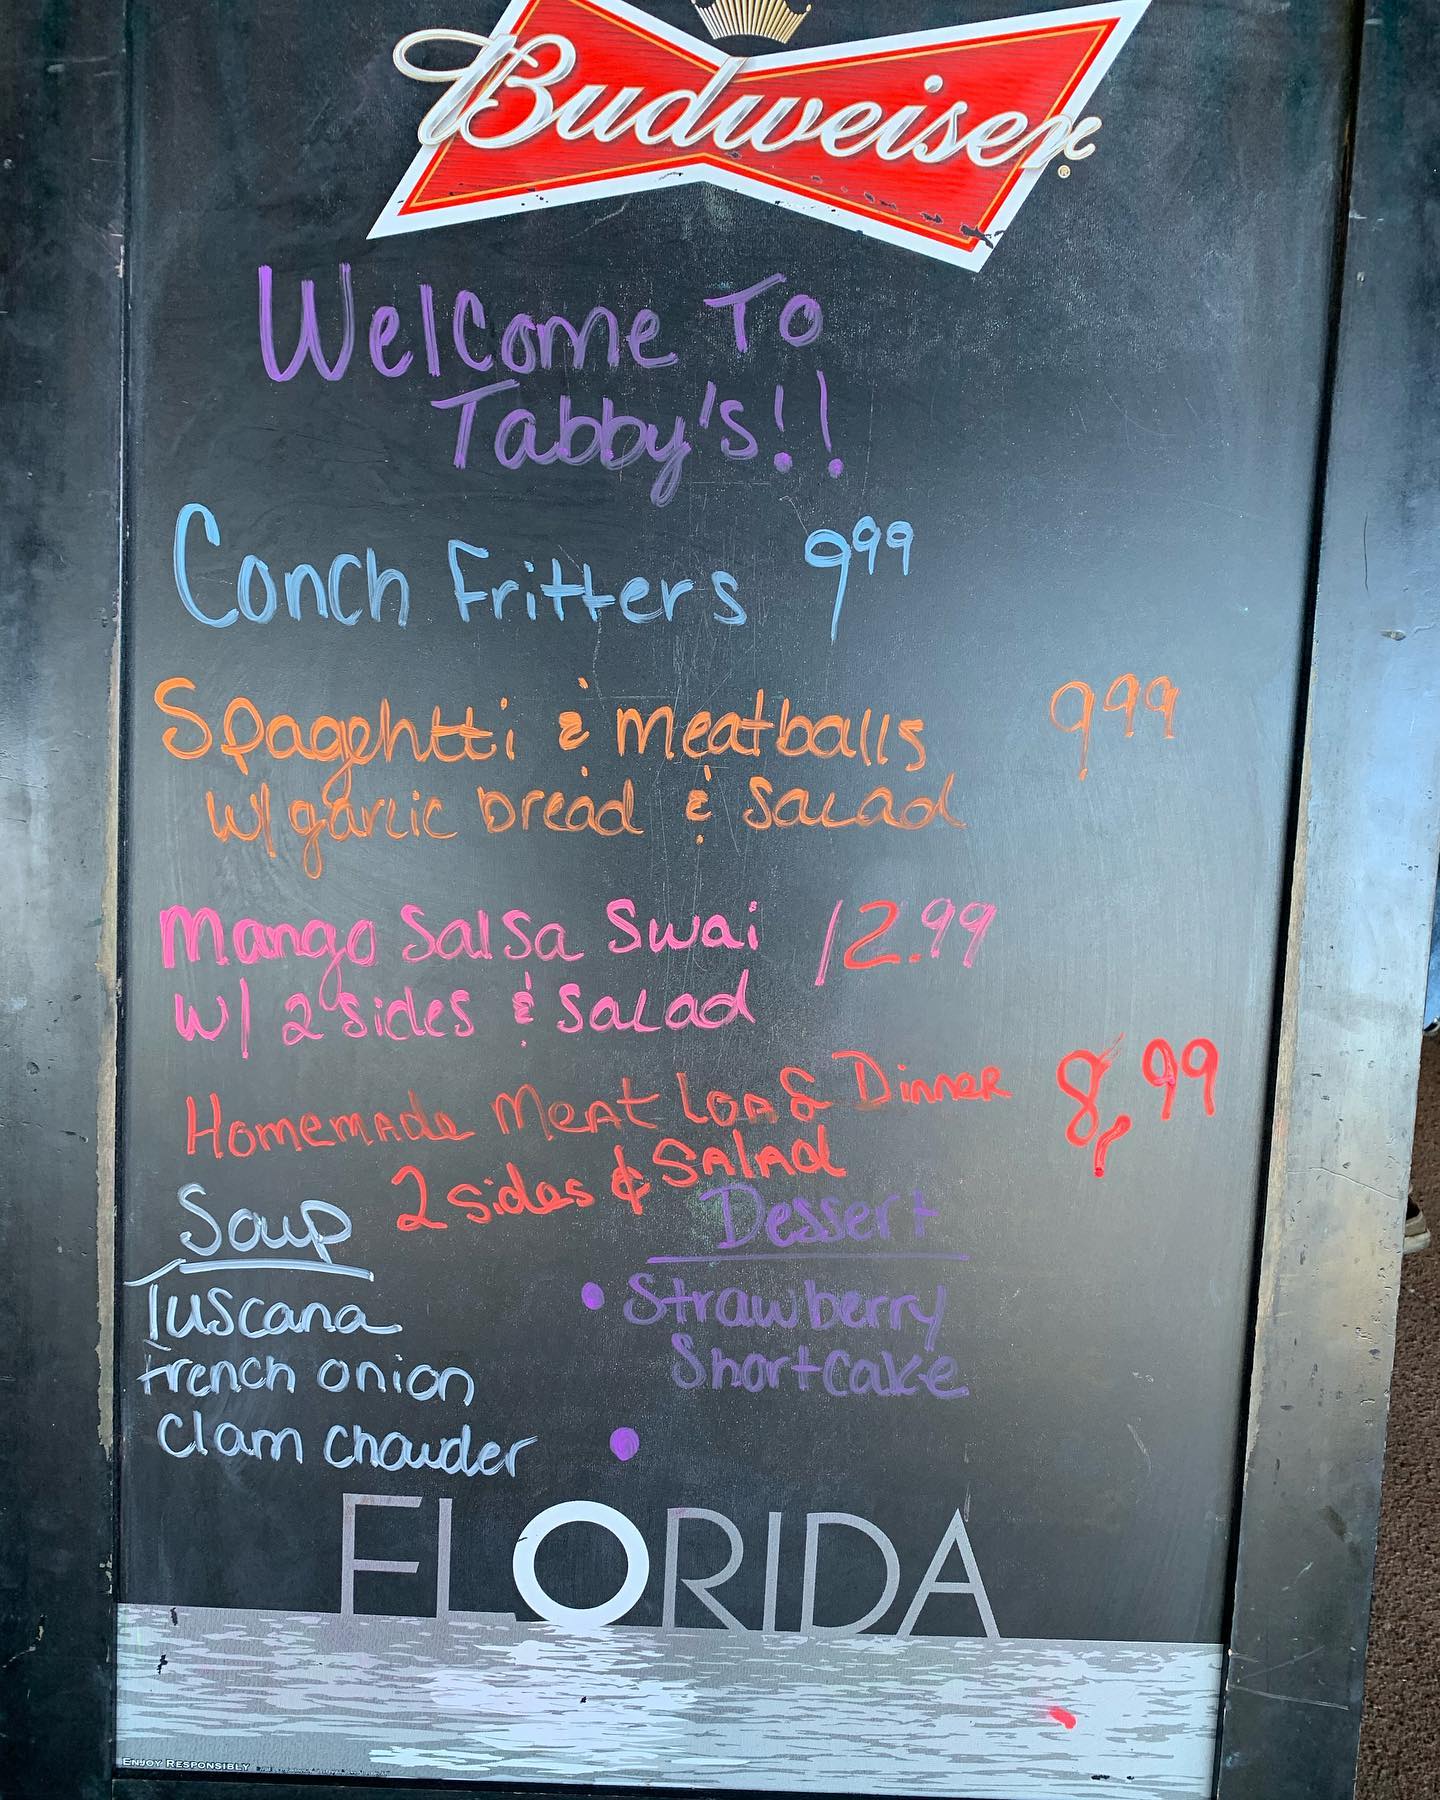 Budweiser®
Welcome To
Tabby's!!
Conch Fritters 9⁹⁹
Spagehtti & Meatballs 9⁹⁹
w/ garlic bread & Salad
Mango Salsa Swai 12.99
w/ 2 sides & Salad
Homemade Meat Loaf Dinner 8,99
2 sides & Salad
Soup
Tuscana
French onion
Clam Chowder
Dessert
• Strawberry
Shortcake
•
FLORIDA
ENJOY RESPONSIBLY